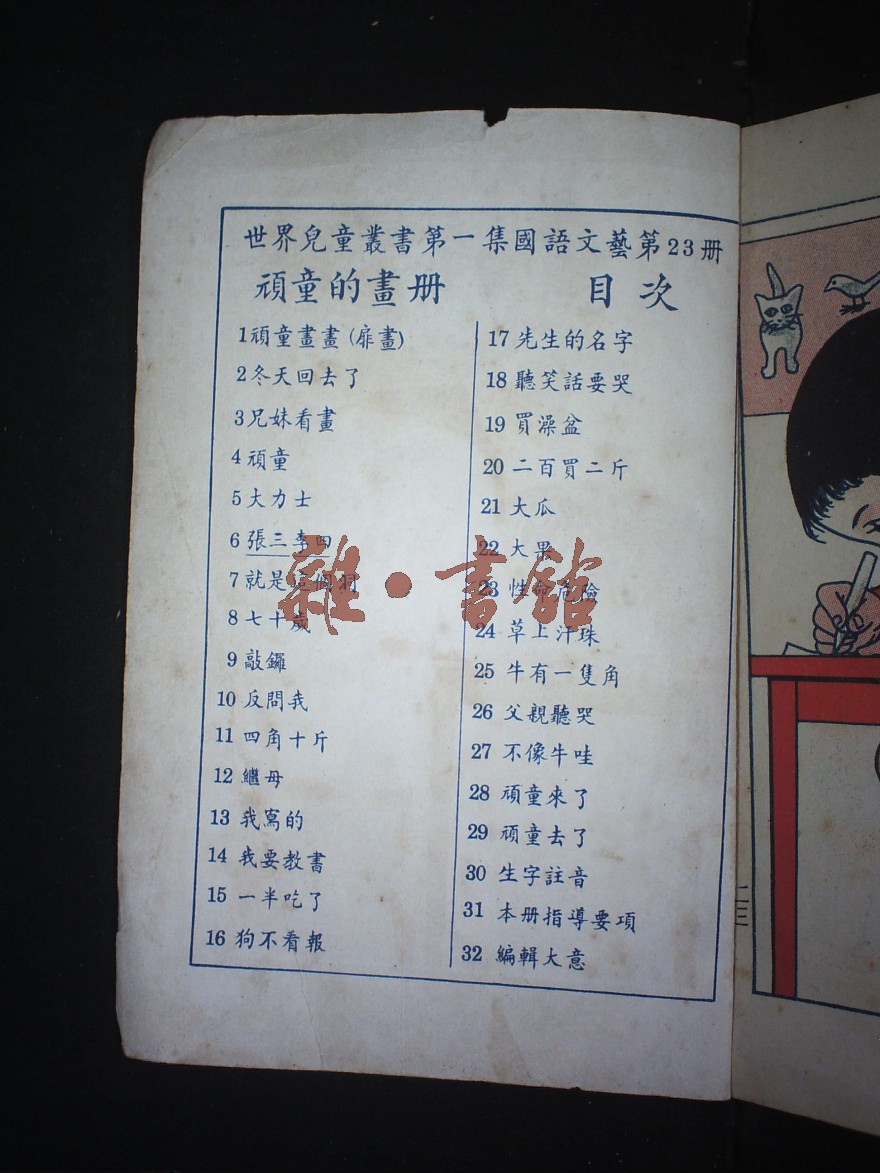 世界兒童叢書第一集國語文藝第23册
頑童的畫册 目次
1 頑童畫畫(扉畫)
2 冬天回去了
3 兄妹看畫
4 頑童
5 大力士
6 張三李四
7 就是這個洞
8 七十歲
9 敲鑼
10 反問我
11 四角十斤
12 繼母
13 我寫的
14 我要教書
15 一半吃了
16 狗不看報
17 先生的名字
18 聽笑話要哭
19 買澡盆
20 二百買二斤
21 大瓜
22 大果
23 性命危險
24 草上汗珠
25 牛有一隻角
26 父親聽哭
27 不像牛哇
28 頑童來了
29 頑童去了
30 生字註音
31 本册指導要項
32 編輯大意
雜·書館
二三